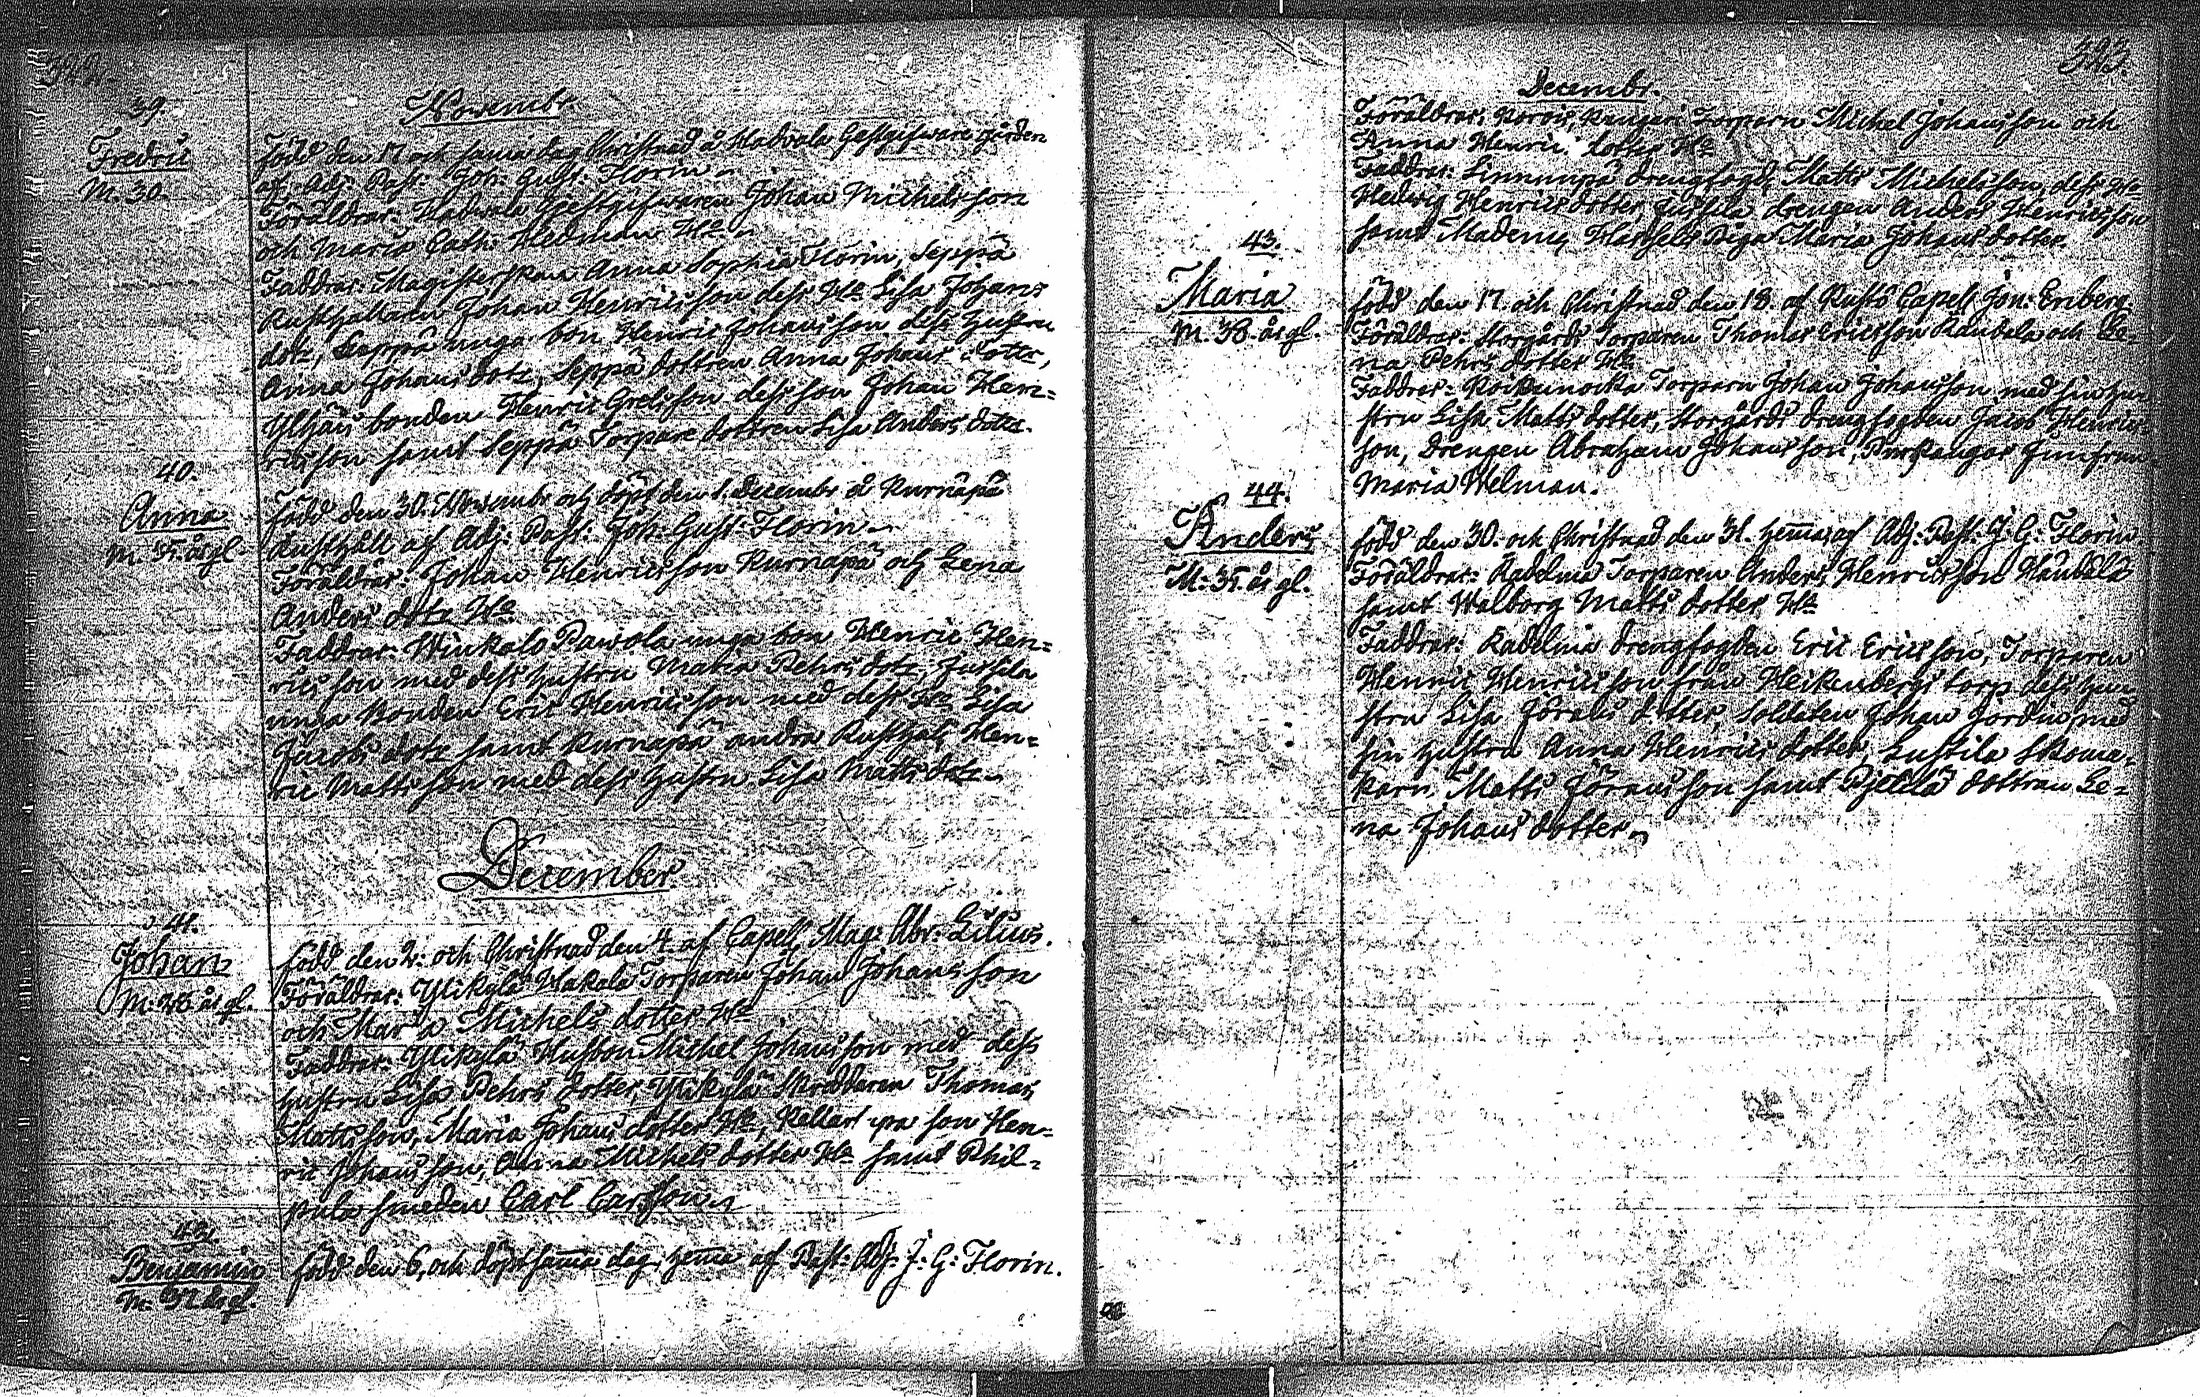 322.
Novembr.
39.
Fredric
M. 30.
född den 17 och sama dag Christnad å Hadvala Gestgifware gården
af Adj: Past: Joh: Gust: Florin
Föräldrar: Hadwala Gjestgifwaren Johan Michelsson
och Maria Cath: Hedman H:o
Faddrar: Magisterskan Anna Sophia Florin, Seppä
Rusthållaren Johan Henricsson dess H:o Lisa Johans
dotr, Seppä unga bon Henric Johansson dess hustru
Anna Johans dotr, Seppä dottren Anna Johans dotter,
bonden Henric dess son Johan Hen=
ricsson samt Seppä Torpare dottren Lisa Anders dotter.
40.
Anna
M. 35. års gl.
född den 30. Novembr och döpt den 1. Decembr å Kurnapä
Rusthåll af Adj: Past: Joh: Gust: Florin
Föräldrar: Johan Henricsson Kurnapä och Lena
Anders dotr H:o
Faddrar: Pawola unga bon Henric Hen=
ricsson med dess hustru Maria Pehrs dotr, Jussila
unga Bonden Eric Henricsson med dess H:o Lisa
Jacobs dotr samt Kurnapä andra Rusthål: Hen=
ric Mattsson med dess hustru Lisa Matts dotr
December
41.
Johan
M: 28 års gl.
född den 2: och Christnad den 4 af Capell: Mag: Abr: Lilius.
Föräldrar: Ylikylä Hakala Torparen Johan Johansson
och Maria Michels dotter H:o
Faddrar: Ylikylä Husbon Michel Johansson med dess
hustru Lisa Pehrs dotter, Ylikylä Skreddaren Thomas
Mattsson, Maria Johans dotter H:o, son Hen=
ric Johansson, Anna Michels dotter H:o samt Phil=
pula smeden Carl Carlsson
42.
Benjamin
M: 32 års gl.
född den 6, och döpt sama dag hema af Past: Adj: J: G: Florin.
323.
Decembr.
Föräldrar: Torparn Michel Johansson och
Anna Henrics dotter H:o
Faddrar: Linnunpä drengfogd Matts Michelsson, dess H:o
Hedwig Henrics dotter, Jussila drengen Anders Henricsson
samt Madem: Piga Maria Johans dotter.
43.
Maria
M. 38. års gl.
född den 17. och Christnad den 18 af Rusko Capell: Joh: Enberg.
Föräldrar: Storgårds Torparen Thomas Ericsson Kandela och Le=
na Pehrs dotter H:o
Faddrar: Torparn Johan Johansson med sin hu=
stru Lisa Matts dotter, Storgårds drengfogden Jacob Henrics=
son, Drengen Abraham Johansson, Jumfrun
Maria Welman.
44.
Anders
M: 35. års gl.
född den 30. och Christnad den 31. hema af Adj: Past: J: G: Florin
Föräldrar: Kadelma Torparen Anders Henricsson
samt Walborg Matts dotter H:o
Faddrar: Kadelma drengfogden Eric Ericsson, Torparen
Henric Henricsson från Heikenbergs torp dess hu=
stru Lisa Jörans dotter, Soldaten Johan Jordin med
sin hustru Anna Henrics dotter, Skoma=
karn Matts Jöransson samt dottran Le=
na Johans dotter